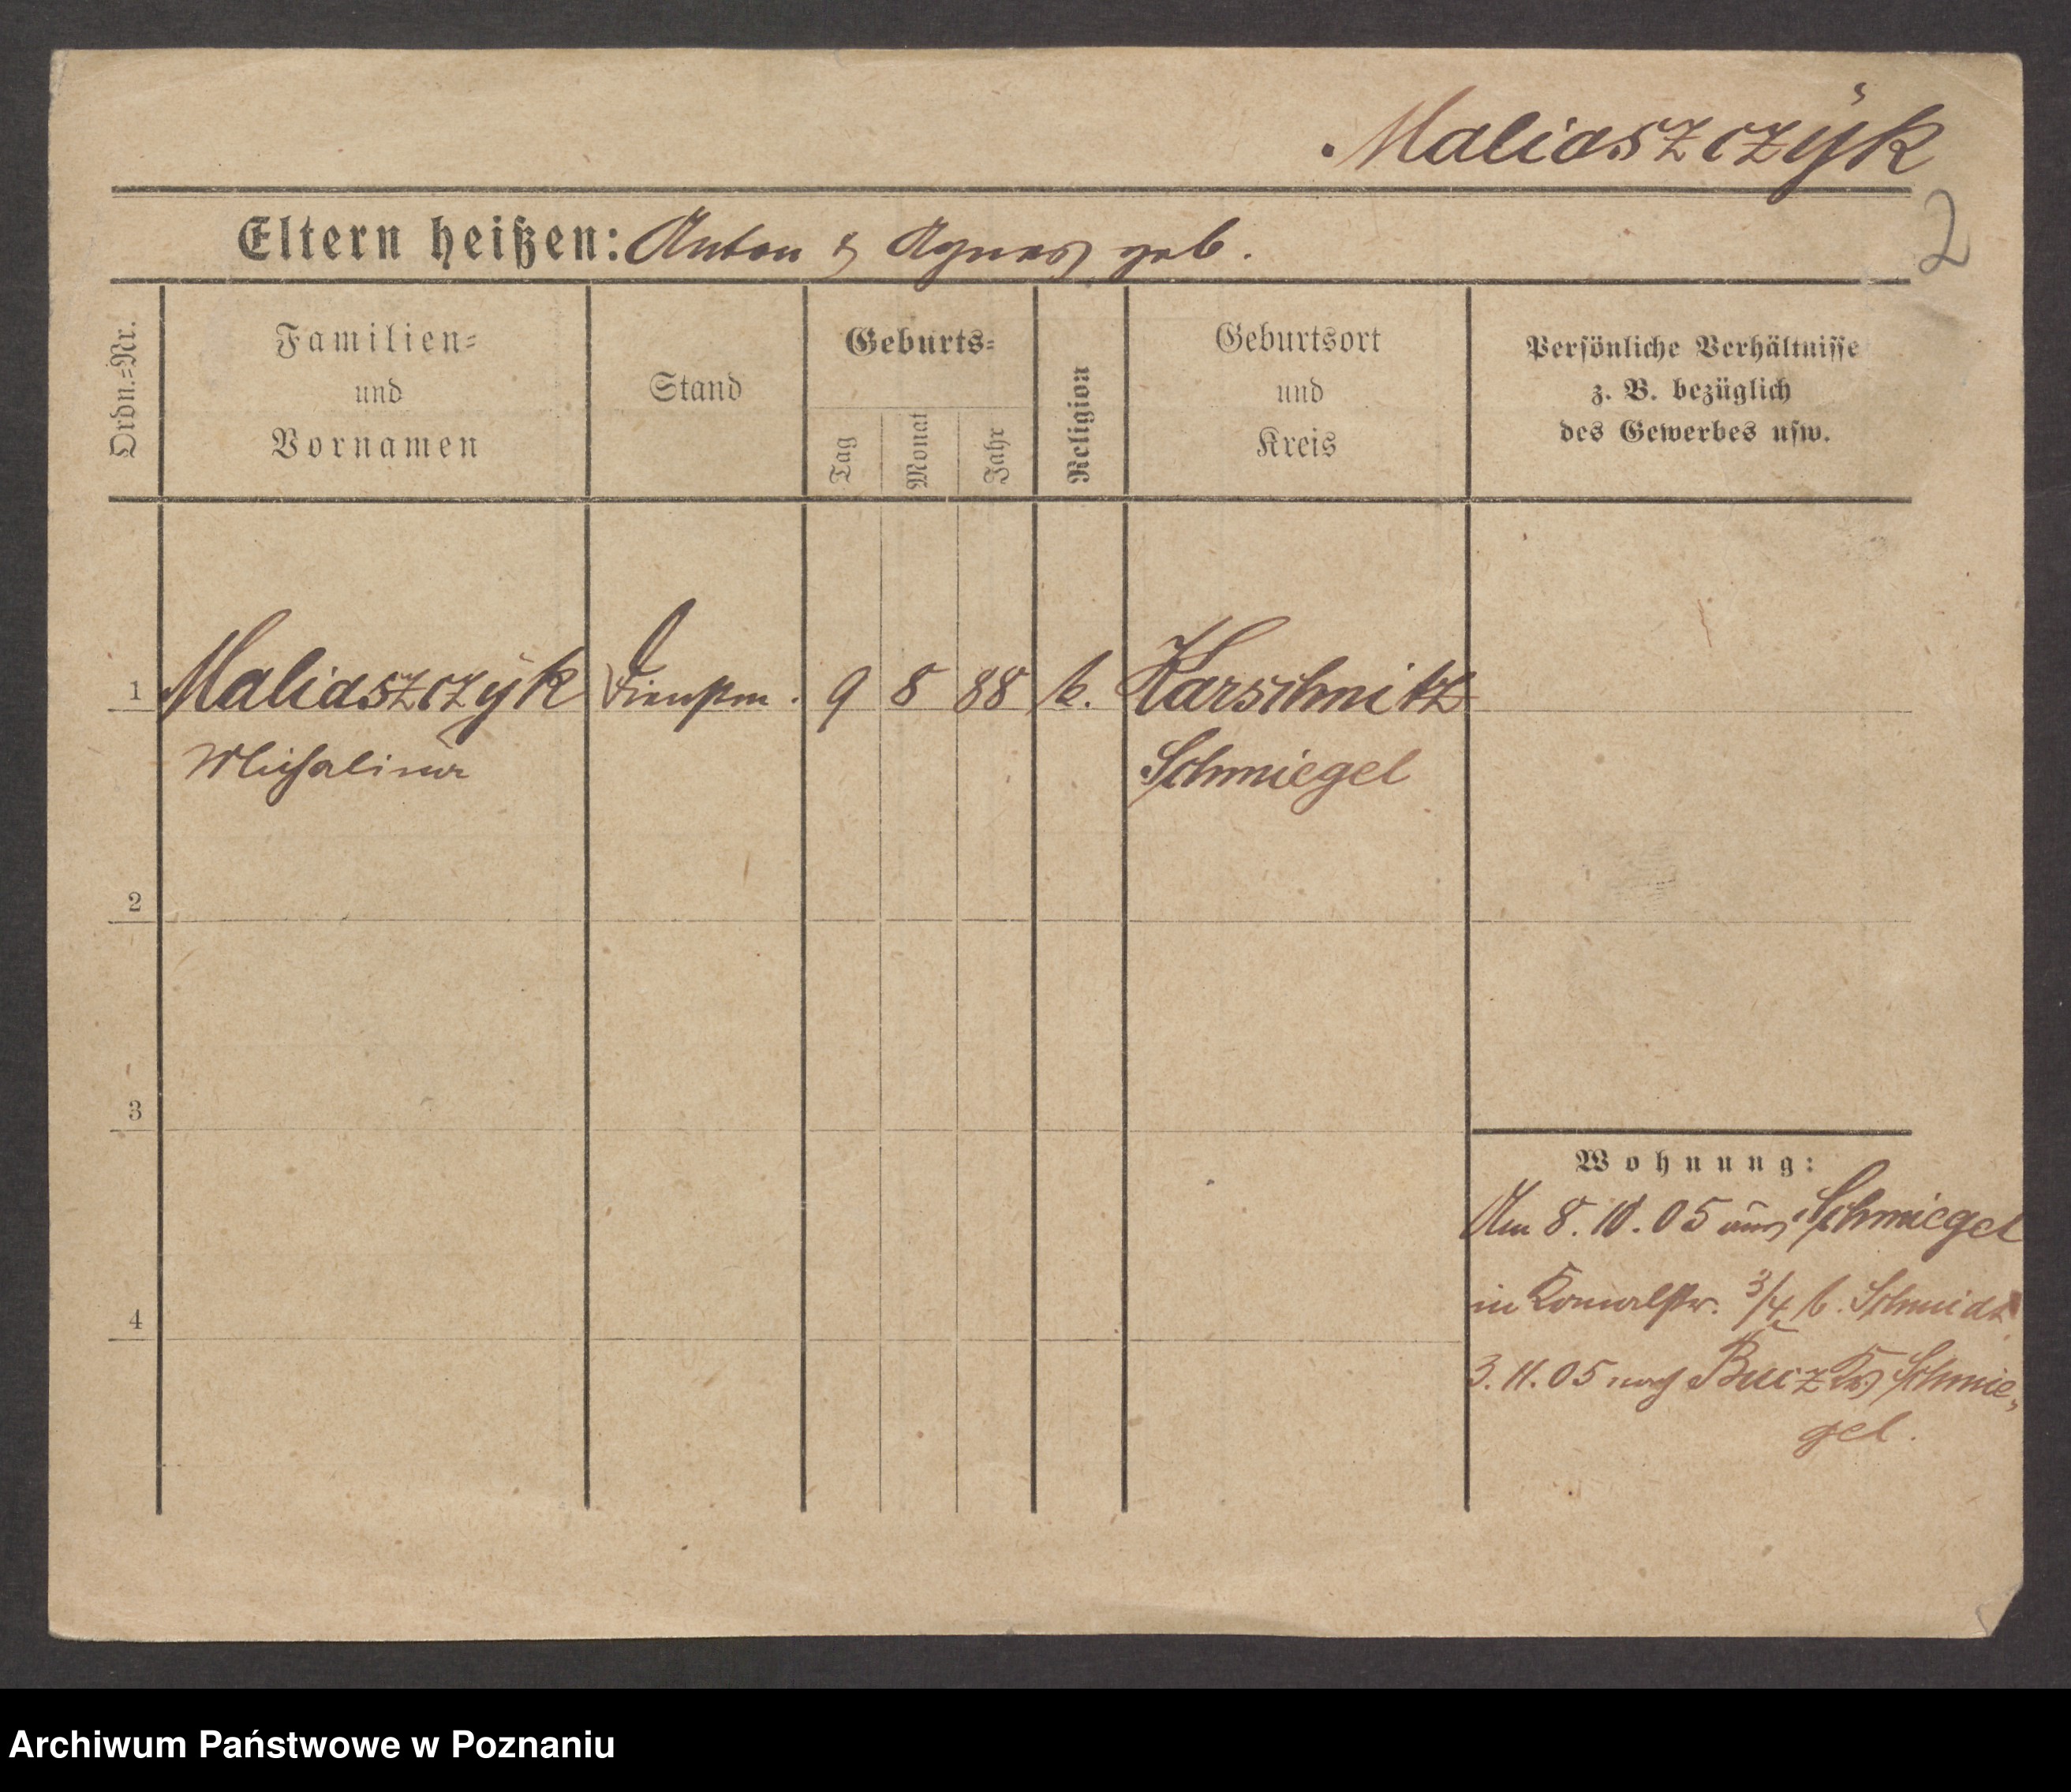 Maliaszczyk
2
Eltern heißen: Anton & Agnes geb.
Ordn.=Nr.
Familien=
und
Vornamen
Stand
Geburts=
Tag
Monat
Jahr
Religion
Geburtsort
und
Kreis
Persönliche Verhältnisse
z. B. bezüglich
des Gewerbes usw.
1 Maliaszczyk Dienstm. 9 8 88 k. Karschnitz
Michalina Schmiegel
2
3
4
Wohnung:
Am 8. 10. 05 aus Schmiegel
in 3/4 b. Schmidt
3. 11. 05 nach Bucz Kr. Schmie„
gel.
Archiwum Państwowe w Poznaniu